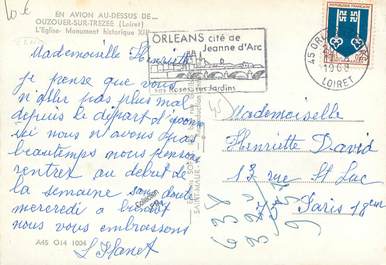 10 €
EN AVION AU-DESSUS DE...
OUZOUER-SUR-TREZEE (Loiret)
L'Eglise - Monument historique XII
Mademoiselle Henriette
je pense que vous
n'allez pas plus mal
depuis le départ d'Yvonne
ici nous n'avons pas
beau temps nous pensons
rentrer au début de
la semaine sans doute
mercredi a bientôt
nous vous embrassons
A45 014 1034
ORLEANS cité de
Jeanne d'Arc
ses Roses ses Jardins
45 ORLEANS
1968
LOIRET
45
Mademoiselle
Henriette David
13 rue St Luc
Paris 18em
638